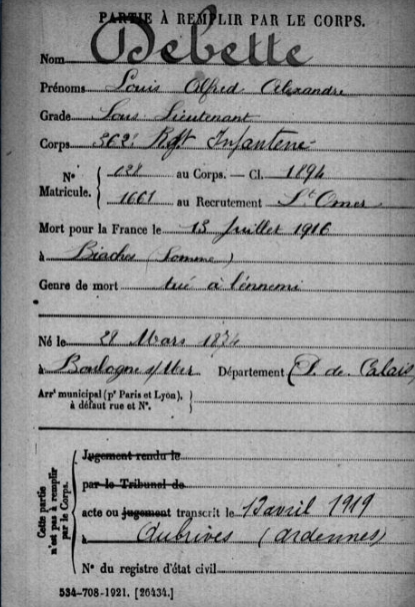 PARTIE À REMPLIR PAR LE CORPS.
Nom Debette
Prénoms Louis Alfred Alexandre
Grade Sous Lieutenant
Corps 362e Rgt Infanterie
N° Matricule. { 028 au Corps. — Cl. 1894
1661 au Recrutement St Omer
Mort pour la France le 15 Juillet 1916
à Biaches (Somme)
Genre de mort tué à l'ennemi
Né le 28 Mars 1874
à Boulogne s/Mer Département (P. de Calais
Arrt municipal (pr Paris et Lyon), }
à défaut rue et N°.
Cette partie n'est pas à remplir par le Corps.
Jugement rendu le
par le Tribunal de
acte ou jugement transcrit le 12 avril 1919
à Aubrives (Ardennes)
N° du registre d'état civil
534-708-1921. [26434.]